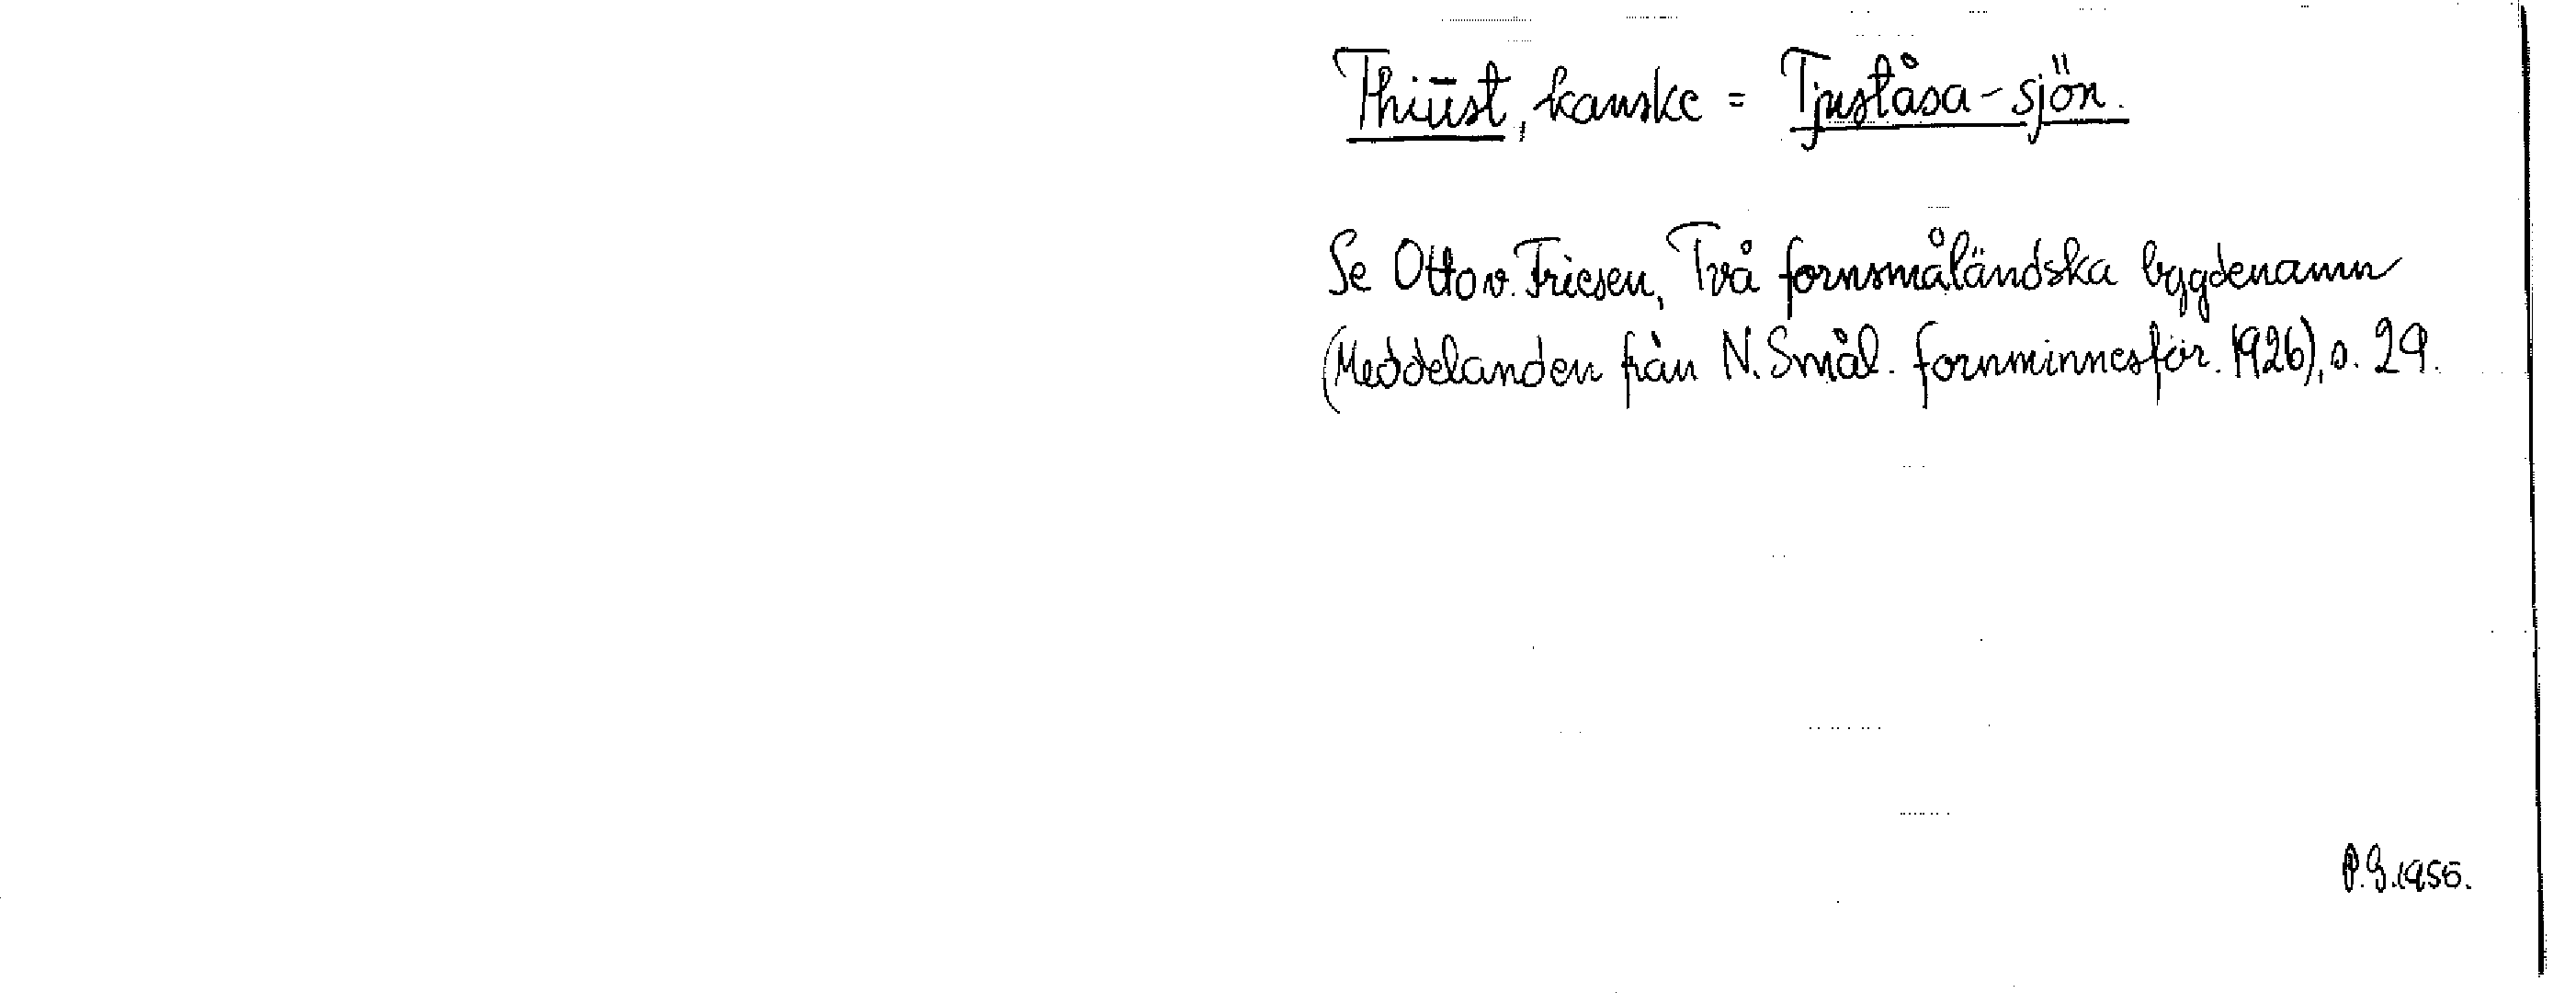 Thiūst, kanske = Tjuståsa-sjön.
Se Otto v. Friesen, Två fornsmåländska bygdenamn
(Meddelanden från N. Smål. fornminnesför. 1926), s. 29.
P.G. 1956.